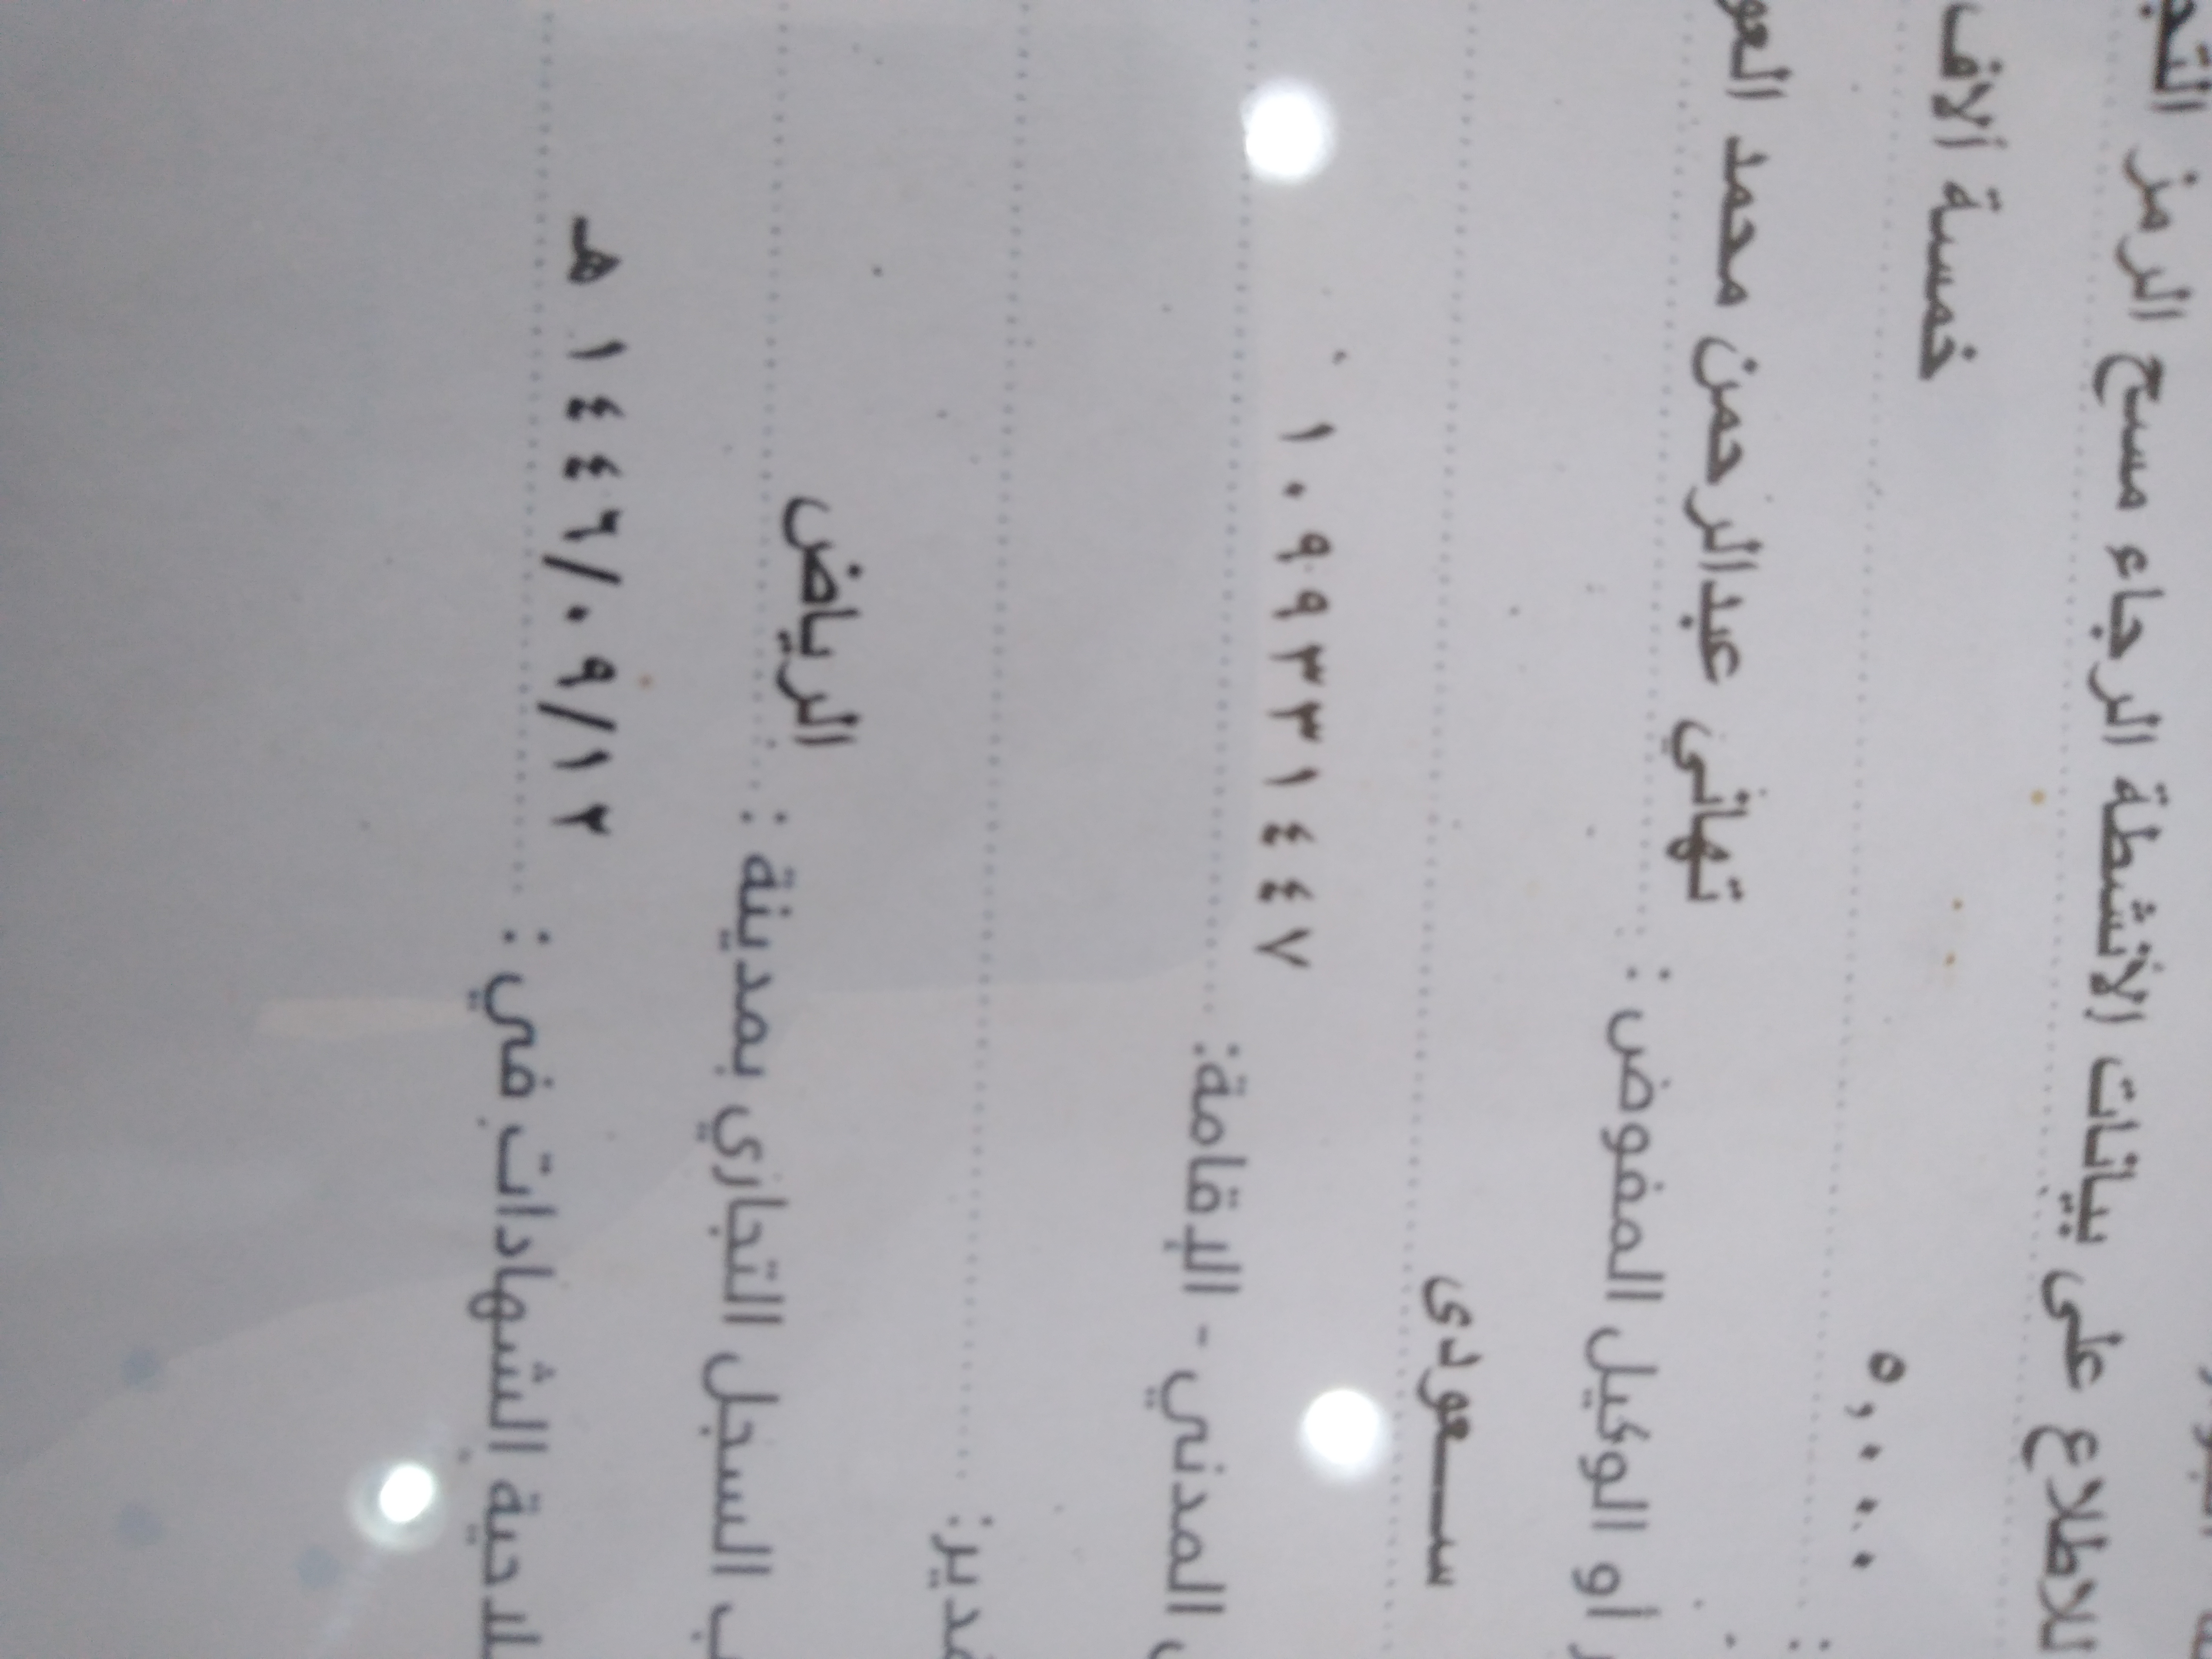 للاطلاع على بيانات الأنشطة الرجاء مسح الرمز
٥,٠٠٠ خمسة الاف
أو الوكيل المفوض : تهاني عبدالرحمن محمد
سعودى
المدني - الإقامة: ١٠٩٩٣٣١٤٤٧
السجل التجاري بمدينة : الرياض
الشهادات في : ١٤٤٦/٠٩/١٢ هـ